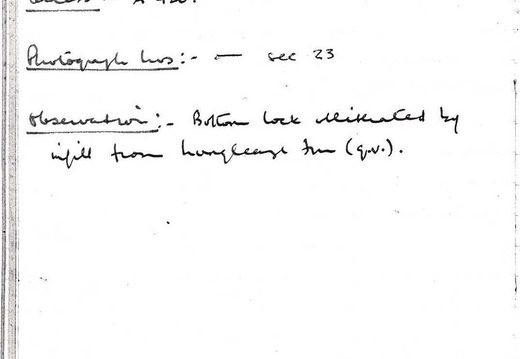 Access :- A 420.
Photograph Nos :- — see 23
Observation :- Bottom lock obliterated by
infill from Tm (q.v.).